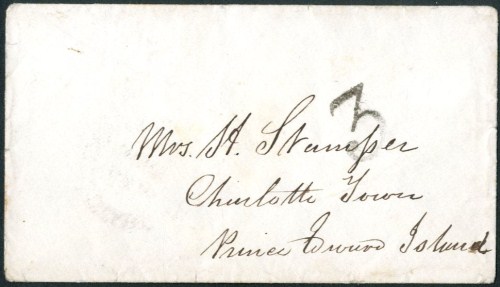 3
Mrs. H. Stamper
Charlotte Town
Prince Edward Island